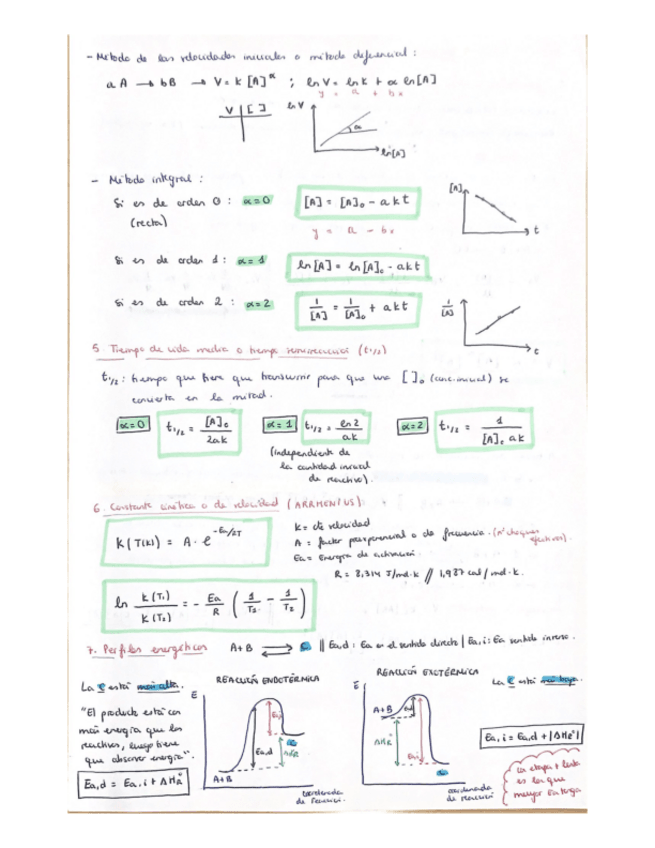 - Método de las velocidades iniciales o método diferencial :
a A → b B → V = k [A]^α ; ln V = ln k + α ln [A]
y = a + b x
V | [ ]
ln V
α
ln [A]
- Método integral :
Si es de orden 0 : α = 0 [A] = [A]₀ - a k t
(recta)
y = a - b x
[A]
t
Si es de orden 1 : α = 1 ln [A] = ln [A]₀ - a k t
Si es de orden 2 : α = 2 1/[A] = 1/[A]₀ + a k t
1/[A]
t
5. Tiempo de vida media o tiempo semirreacción (t₁/₂)
t₁/₂ : tiempo que tiene que transcurrir para que una [ ]₀ (conc. inicial) se
convierta en la mitad.
α = 0 t₁/₂ = [A]₀ / 2ak α = 1 t₁/₂ = ln 2 / ak α = 2 t₁/₂ = 1 / [A]₀ ak
(independiente de
la cantidad inicial
de reactivo).
6. Constante cinética o de velocidad (ARRHENIUS):
K (T(K)) = A · e^(-Ea/RT)
K = cte velocidad
A = factor preexponencial o de frecuencia . (nº choques
efectivos).
Ea = Energía de activación.
R = 8,314 J/mol·k // 1,987 cal/mol·k.
ln K(T₁)/K(T₂) = - Ea/R ( 1/T₁ - 1/T₂ )
7. Perfiles energéticos A + B ⇌ C || Ea,d : Ea en el sentido directo | Ea,i : Ea sentido inverso .
La C está más alta.
"El producto está con
más energía que los
reactivos, luego tiene
que absorver energía".
Ea,d = Ea,i + ΔH°R
REACCIÓN ENDOTÉRMICA
E
Ea,i
C
Ea,d
ΔH°R
A+B
coordenada
de reacción.
REACCIÓN EXOTÉRMICA
E
A+B
Ea,d
ΔH°R
Ea,i
C
coordenada
de reacción
La C está más baja.
Ea,i = Ea,d + |ΔH°R|
La etapa + lenta
es la que
mayor Ea tenga